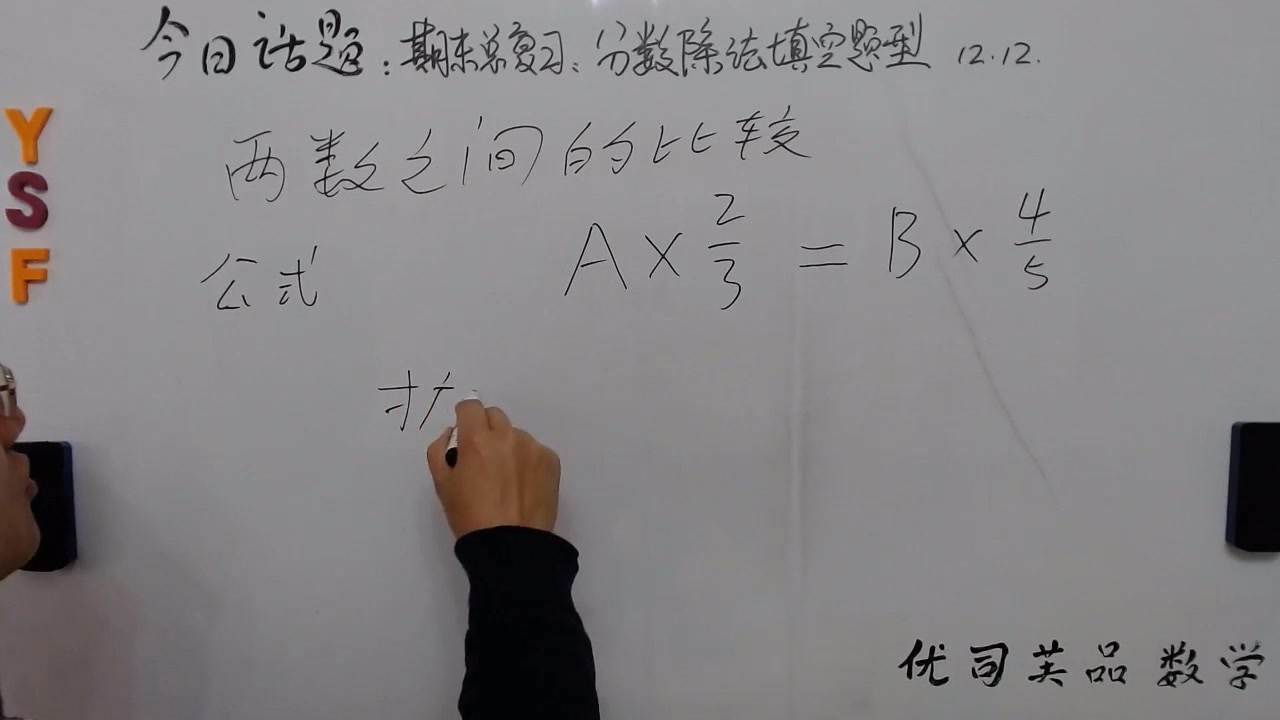 今日话题：期末总复习：分数除法填空题型 12.12.
Y
S
F
两数之间的比较
公式 A×2/3=B×4/5
扩
优司芙品数学